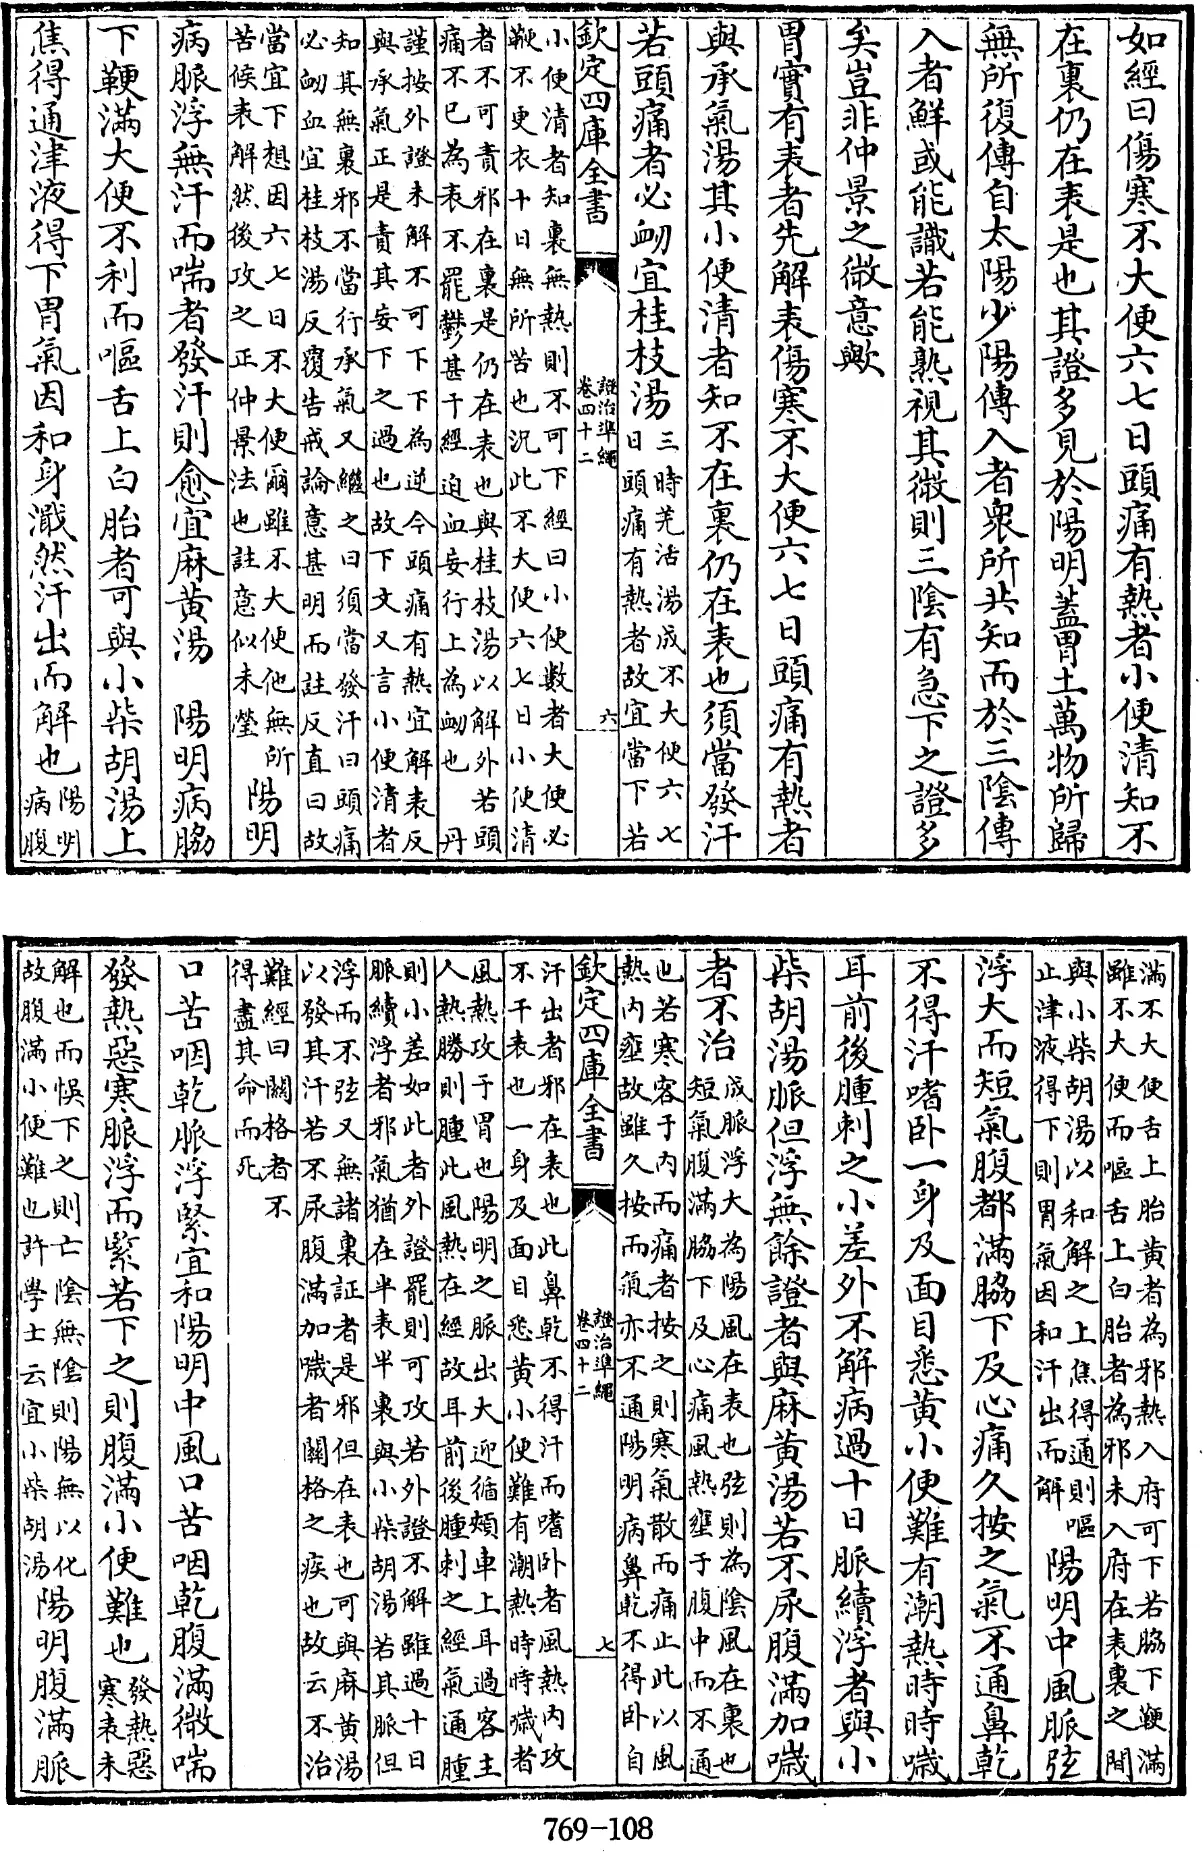 如經曰傷寒不大便六七日頭痛有熱者小便清知不
在裏仍在表是也其證多見於陽明蓋胃土萬物所歸
無所復傳自太陽少陽傳入者衆所共知而於三陰傳
入者鮮或能識若能熟視其微則三陰有急下之證多
矣豈非仲景之微意歟
胃實有表者先解表傷寒不大便六七日頭痛有熱者
與承氣湯其小便清者知不在裏仍在表也須當發汗
若頭痛者必衂宜桂枝湯
三時羌活湯成不大便六七
日頭痛有熱者故宜當下若
欽定四庫全書
證治準繩
卷四十二
六
小便清者知裏無熱則不可下經曰小便數者大便必
鞕不更衣十日無所苦也況此不大便六七日小便清
者不可責邪在裏是仍在表也與桂枝湯以解外若頭
痛不已為表不罷鬱甚于經迫血妄行上為衂也 丹
謹按外證未解不可下下為逆今頭痛有熱宜解表反
與承氣正是責其妄下之過也故下文又言小便清者
知其無裏邪不當行承氣又繼之曰須當發汗曰頭痛
必衂血宜桂枝湯反覆告戒論意甚明而註反直曰故
當宜下想因六七日不大便爾雖不大便他無所
苦候表解然後攻之正仲景法也註意似未瑩
陽明
病脈浮無汗而喘者發汗則愈宜麻黃湯 陽明病脇
下鞕滿大便不利而嘔舌上白胎者可與小柴胡湯上
焦得通津液得下胃氣因和身濈然汗出而解也
陽明
病腹
滿不大便舌上胎黃者為邪熱入府可下若脇下鞕滿
雖不大便而嘔舌上白胎者為邪未入府在表裏之間
與小柴胡湯以和解之上焦得通則嘔
止津液得下則胃氣因和汗出而解
陽明中風脈弦
浮大而短氣腹都滿脇下及心痛久按之氣不通鼻乾
不得汗嗜卧一身及面目悉黃小便難有潮熱時時噦
耳前後腫刺之小差外不解病過十日脈續浮者與小
柴胡湯脈但浮無餘證者與麻黃湯若不尿腹滿加噦
者不治
成脈浮大為陽風在表也弦則為陰風在裏也
短氣腹滿脇下及心痛風熱壅于腹中而不通
也若寒客于內而痛者按之則寒氣散而痛止此以風
熱內壅故雖久按而氣亦不通陽明病鼻乾不得卧自
欽定四庫全書
證治準繩
卷四十二
七
汗出者邪在表也此鼻乾不得汗而嗜卧者風熱內攻
不干表也一身及面目悉黃小便難有潮熱時時噦者
風熱攻于胃也陽明之脈出大迎循頰車上耳過客主
人熱勝則腫此風熱在經故耳前後腫刺之經氣通腫
則小差如此者外證罷則可攻若外證不解雖過十日
脈續浮者邪氣猶在半表半裏與小柴胡湯若其脈但
浮而不弦又無諸裏証者是邪但在表也可與麻黃湯
以發其汗若不尿腹滿加噦者關格之疾也故云不治
難經曰關格者不
得盡其命而死
口苦咽乾脈浮緊宜和陽明中風口苦咽乾腹滿微喘
發熱惡寒脈浮而緊若下之則腹滿小便難也
發熱惡
寒表未
解也而悞下之則亡陰無陰則陽無以化
故腹滿小便難也許學士云宜小柴胡湯
陽明腹滿脈
769-108